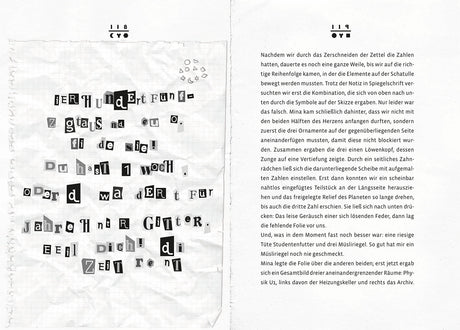 118
IER HUNdERT FUNF-
Z gTAUS Nd EU O.
fI de sIe!
DU haST 1 WOCH .
ODeR d WA dERT FUR
JAHRe HNtR GITTER.
EEIL DICH! dI
ZEIT RENT
Nachdem wir durch das Zerschneiden der Zettel die Zahlen
hatten, dauerte es noch eine ganze Weile, bis wir auf die rich-
tige Reihenfolge kamen, in der die Elemente auf der Schatulle
bewegt werden mussten. Trotz der Notiz in Spiegelschrift ver-
suchten wir erst die Kombination, die sich von oben nach un-
ten durch die Symbole auf der Skizze ergaben. Nur leider war
das falsch. Mina kam schließlich dahinter, dass wir nicht mit
den beiden Hälften des Herzens anfangen durften, sondern
zuerst die drei Ornamente auf der gegenüberliegenden Seite
aneinanderfügen mussten, damit diese nicht blockiert wur-
den. Zusammen ergaben die drei einen Löwenkopf, dessen
Zunge auf eine Vertiefung zeigte. Durch ein seitliches Zahn-
rädchen ließ sich die darunterliegende Scheibe mit aufgemal-
ten Zahlen einstellen. Erst dann konnten wir ein scheinbar
nahtlos eingefügtes Teilstück an der Längsseite herauszie-
hen und das freigelegte Relief des Planeten so lange drehen,
bis auch die dritte Zahl erschien. Sie ließ sich nach unten drü-
cken: Das leise Geräusch einer sich lösenden Feder, dann lag
die fehlende Folie vor uns.
Und, was in dem Moment fast noch besser war: eine riesige
Tüte Studentenfutter und drei Müsliriegel. So gut hat mir ein
Müsliriegel noch nie geschmeckt.
Mina legte die Folie über die anderen beiden; erst jetzt ergab
sich ein Gesamtbild dreier aneinandergrenzender Räume: Phy-
sik U1, links davon der Heizungskeller und rechts das Archiv.